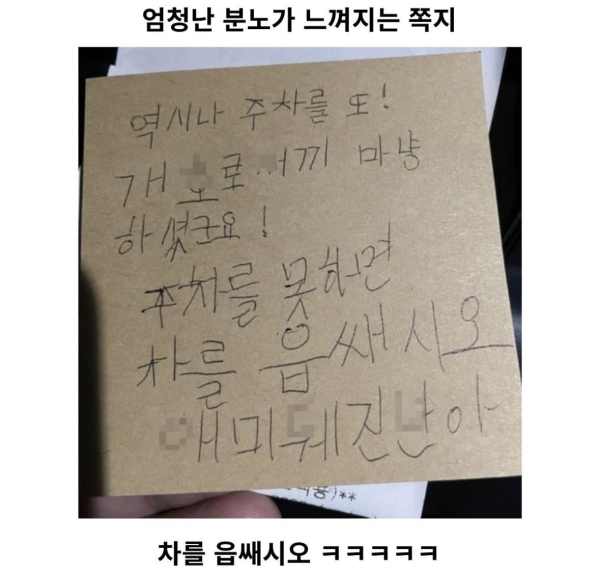 엄청난 분노가 느껴지는 쪽지
역시나 주차를 또!
마냥
하셨군요!
주차를 못하면
차를 읍쌔시오
차를 읍쌔시오 ㅋㅋㅋㅋㅋ